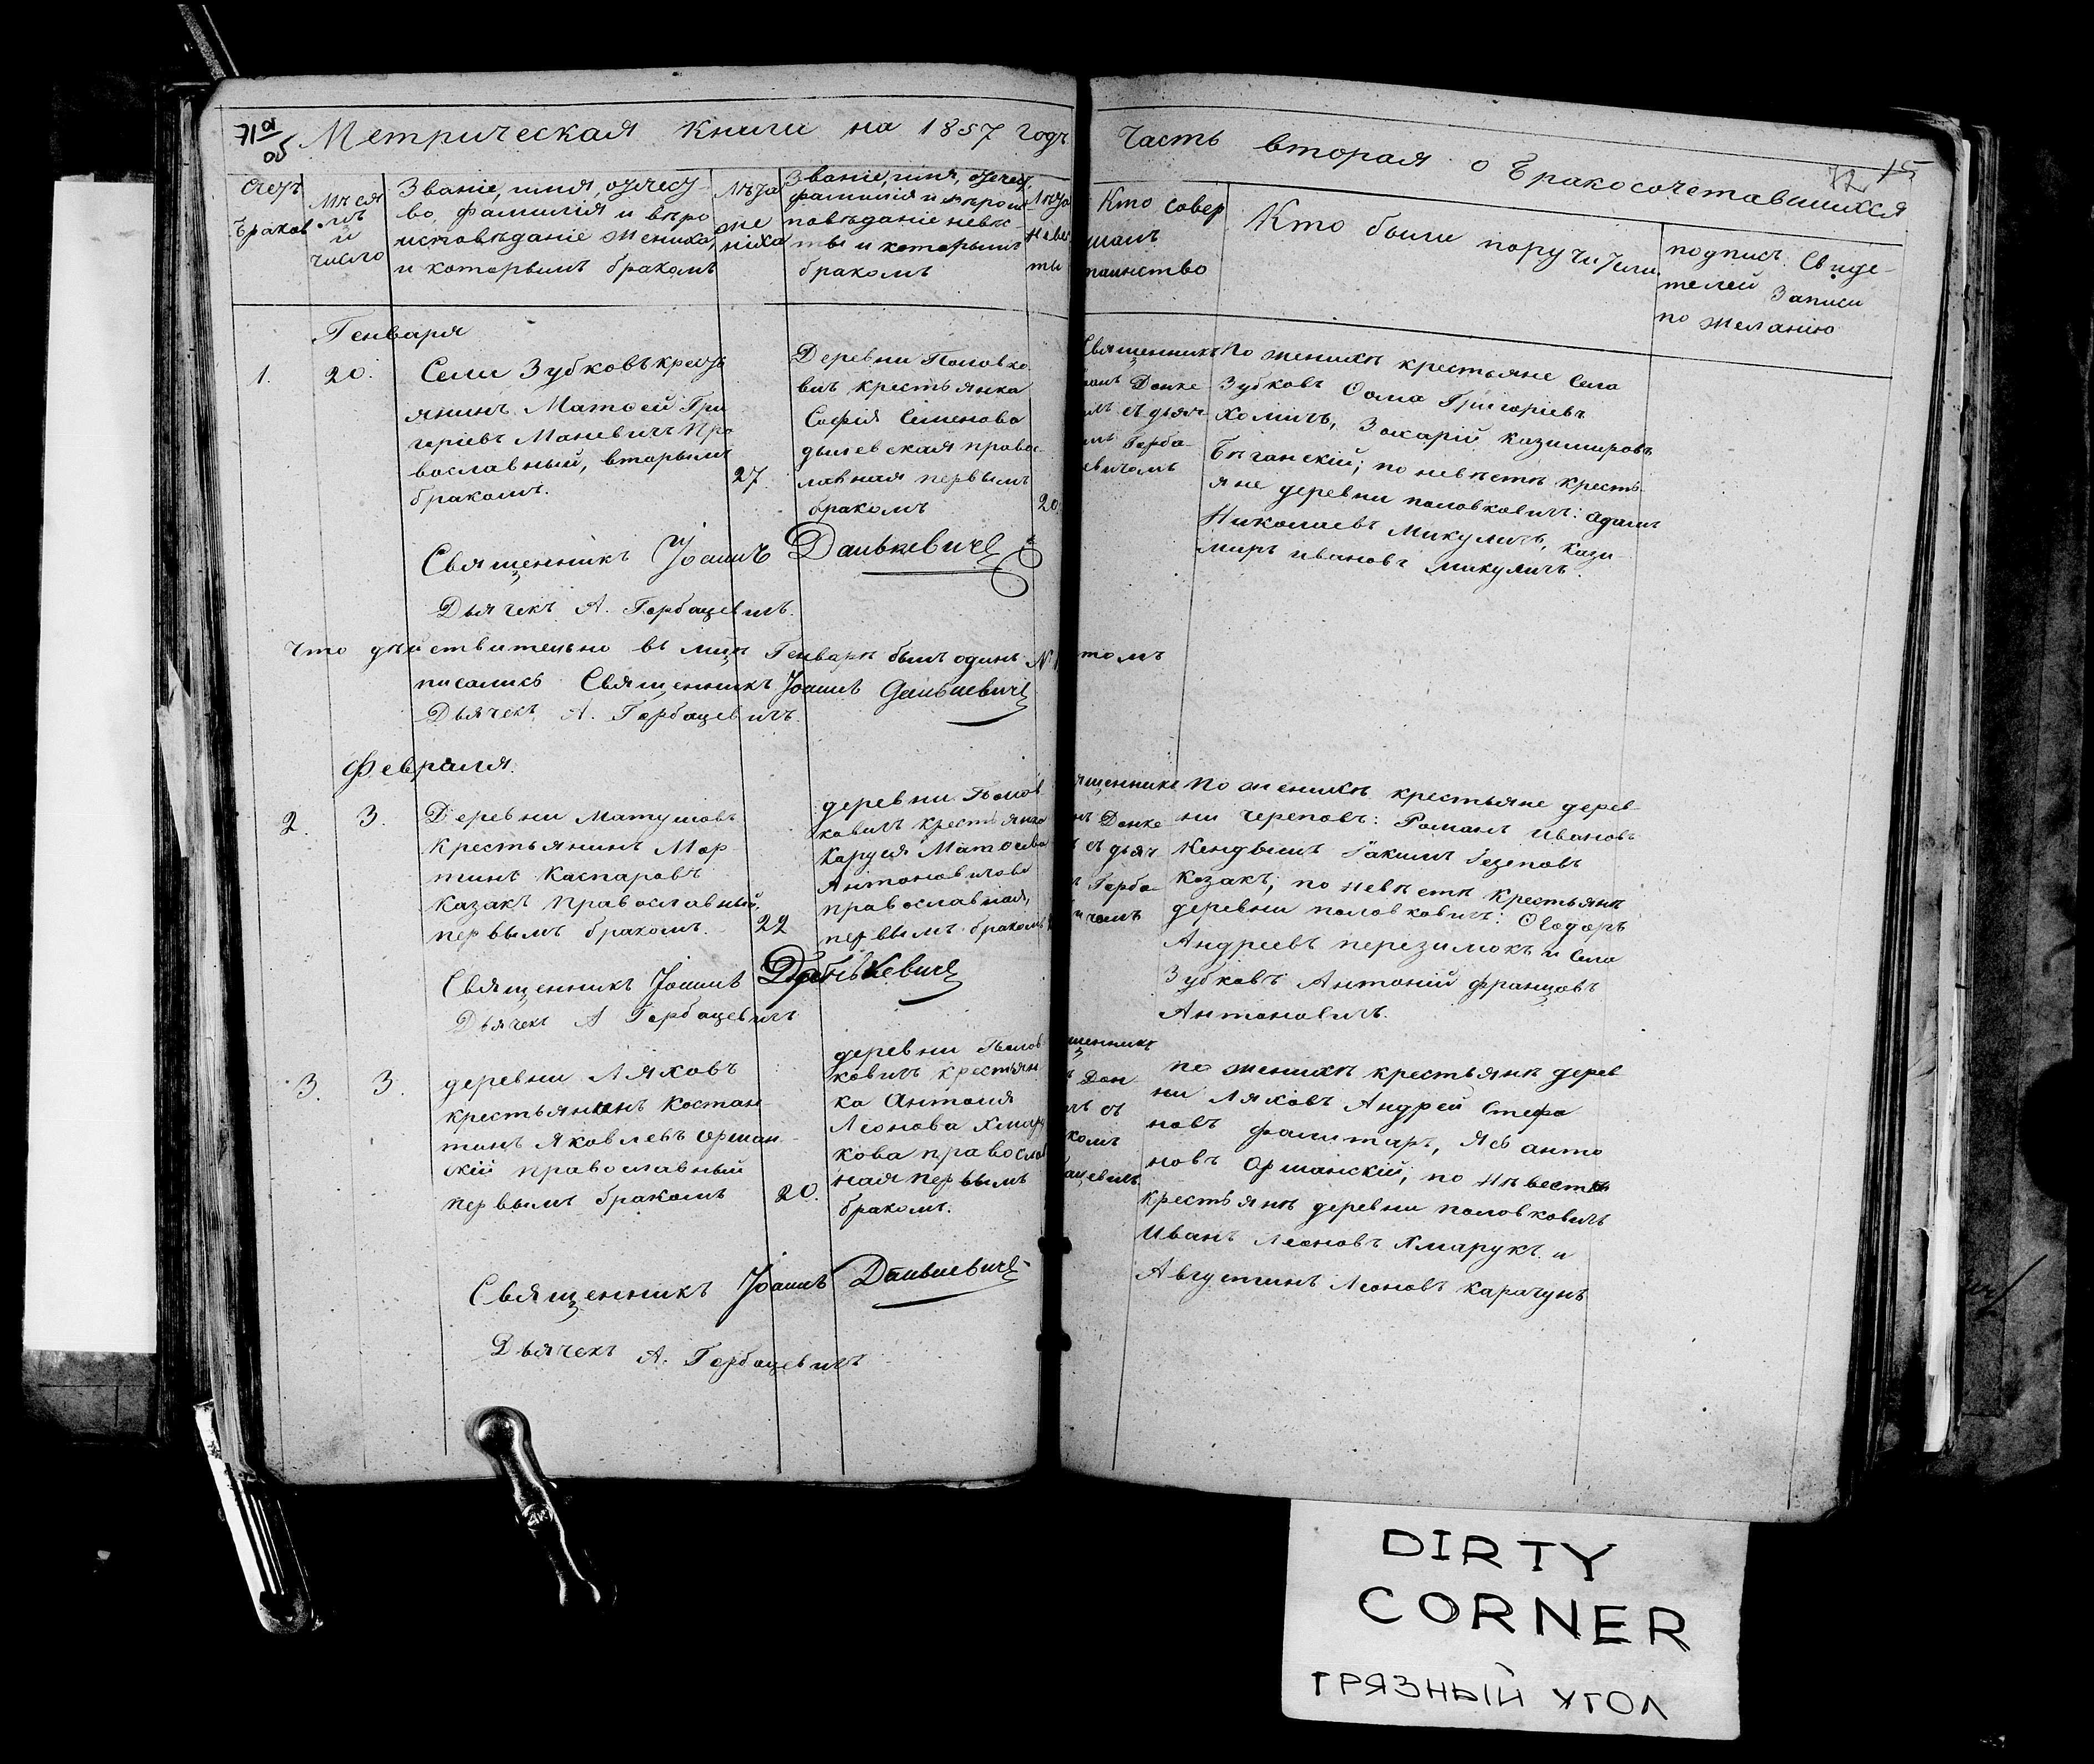 71 об
Метрическая книга на 1857 годъ
Часть вторая о бракосочетавшихся
72 15
Счетъ браков
Мѣсяцъ и число
Званіе, имя, отчест-
во, фамилія и вѣро
исповѣданіе жениха,
и которымъ бракомъ
Лѣта
же
ниха
Званіе, имя, отчест,
фамилія и вѣрои
повѣданіе невѣс-
ты и которымъ
бракомъ
Лѣта
невѣс
ты
Кто совер
шалъ
таинство
Кто были поручители
подпись Свиде-
телей записи
по желанію
Генваря
1.
20.
Села Зубковъ крест
янинъ Матѳей Гри
горіевъ Маневичъ Пра
вославный, вторымъ
бракомъ.
27
Деревни Половко
вичъ крестьянка
Софія Семенова
дылевская правос
лавная первымъ
бракомъ
20.
Священникъ
Данке
съ дьяч
Горба
евичомъ
По женихѣ крестьяне Села
Зубковъ Ѳома Григоріевъ
Хомичъ, Захарій Казимировъ
Бѣганскій; по невѣстѣ кресть
яне деревни половковичъ: Адамъ
Николаевъ Микуличъ, Кази
миръ Ивановъ Микуличъ.
Священникъ Іоаннъ Данькевичъ
Дьячекъ А. Горбацевичъ.
Что дѣйствительно въ мцѣ Генварѣ былъ одинъ №1 томъ
писались Священникъ Іоаннъ Данькевичъ
Дьячекъ А. Горбацевичъ.
Февраля.
2.
3.
Деревни Матушовъ
Крестьянинъ Мар
тинъ Каспаровъ
Казакъ Православный,
первымъ бракомъ.
22
деревни Полов
ковичъ крестьянка
Каруся Матѳева
Антоновичова
православная,
первымъ бракомъ
ященникъ
Данке
съ дьяч
Горба
ичомъ
По женихѣ крестьяне дерев
ни Череповъ: Романъ Ивановъ
Кендышъ Іакимъ Іезеповъ
Казакъ; по невѣстѣ крестьянѣ
деревни половковичъ: Ѳеодоръ
Андреевъ перезимокъ и Села
Зубковъ Антоній Францовъ
Антоновичъ.
Священникъ Іоаннъ Данькевичъ
Дьячекъ А Горбацевичъ
3.
3.
деревни Ляховъ
крестьянинъ Костан-
тинъ Яковлевъ Оршан-
скій православный
первымъ бракомъ
20.
деревни Полов
ковичъ крестьян
ка Антоля
Леонова Хмару
кова правосла
ная первымъ
бракомъ.
щенникъ
Дан
съ
комъ
ацевичъ
по женихѣ крестьянѣ дерев
ни Ляховъ Андрей Стефа
новъ фалитаръ, Яѳ Анто
новъ Оршанскій; по нѣвестѣ
крестьянѣ деревни половковичъ
Иванъ Леоновъ Хмарукъ и
Августинъ Леоновъ Карачунъ
Священникъ Іоаннъ Данькевичъ
Дьячекъ А. Горбацевичъ
DIRTY
CORNER
ГРЯЗНЫЙ УГОЛ